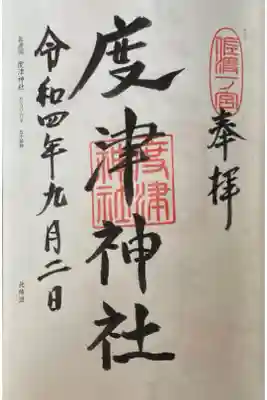 佐渡一ノ宮
奉拝
度津神社
度津
神社
令和四年九月二日
度津神社